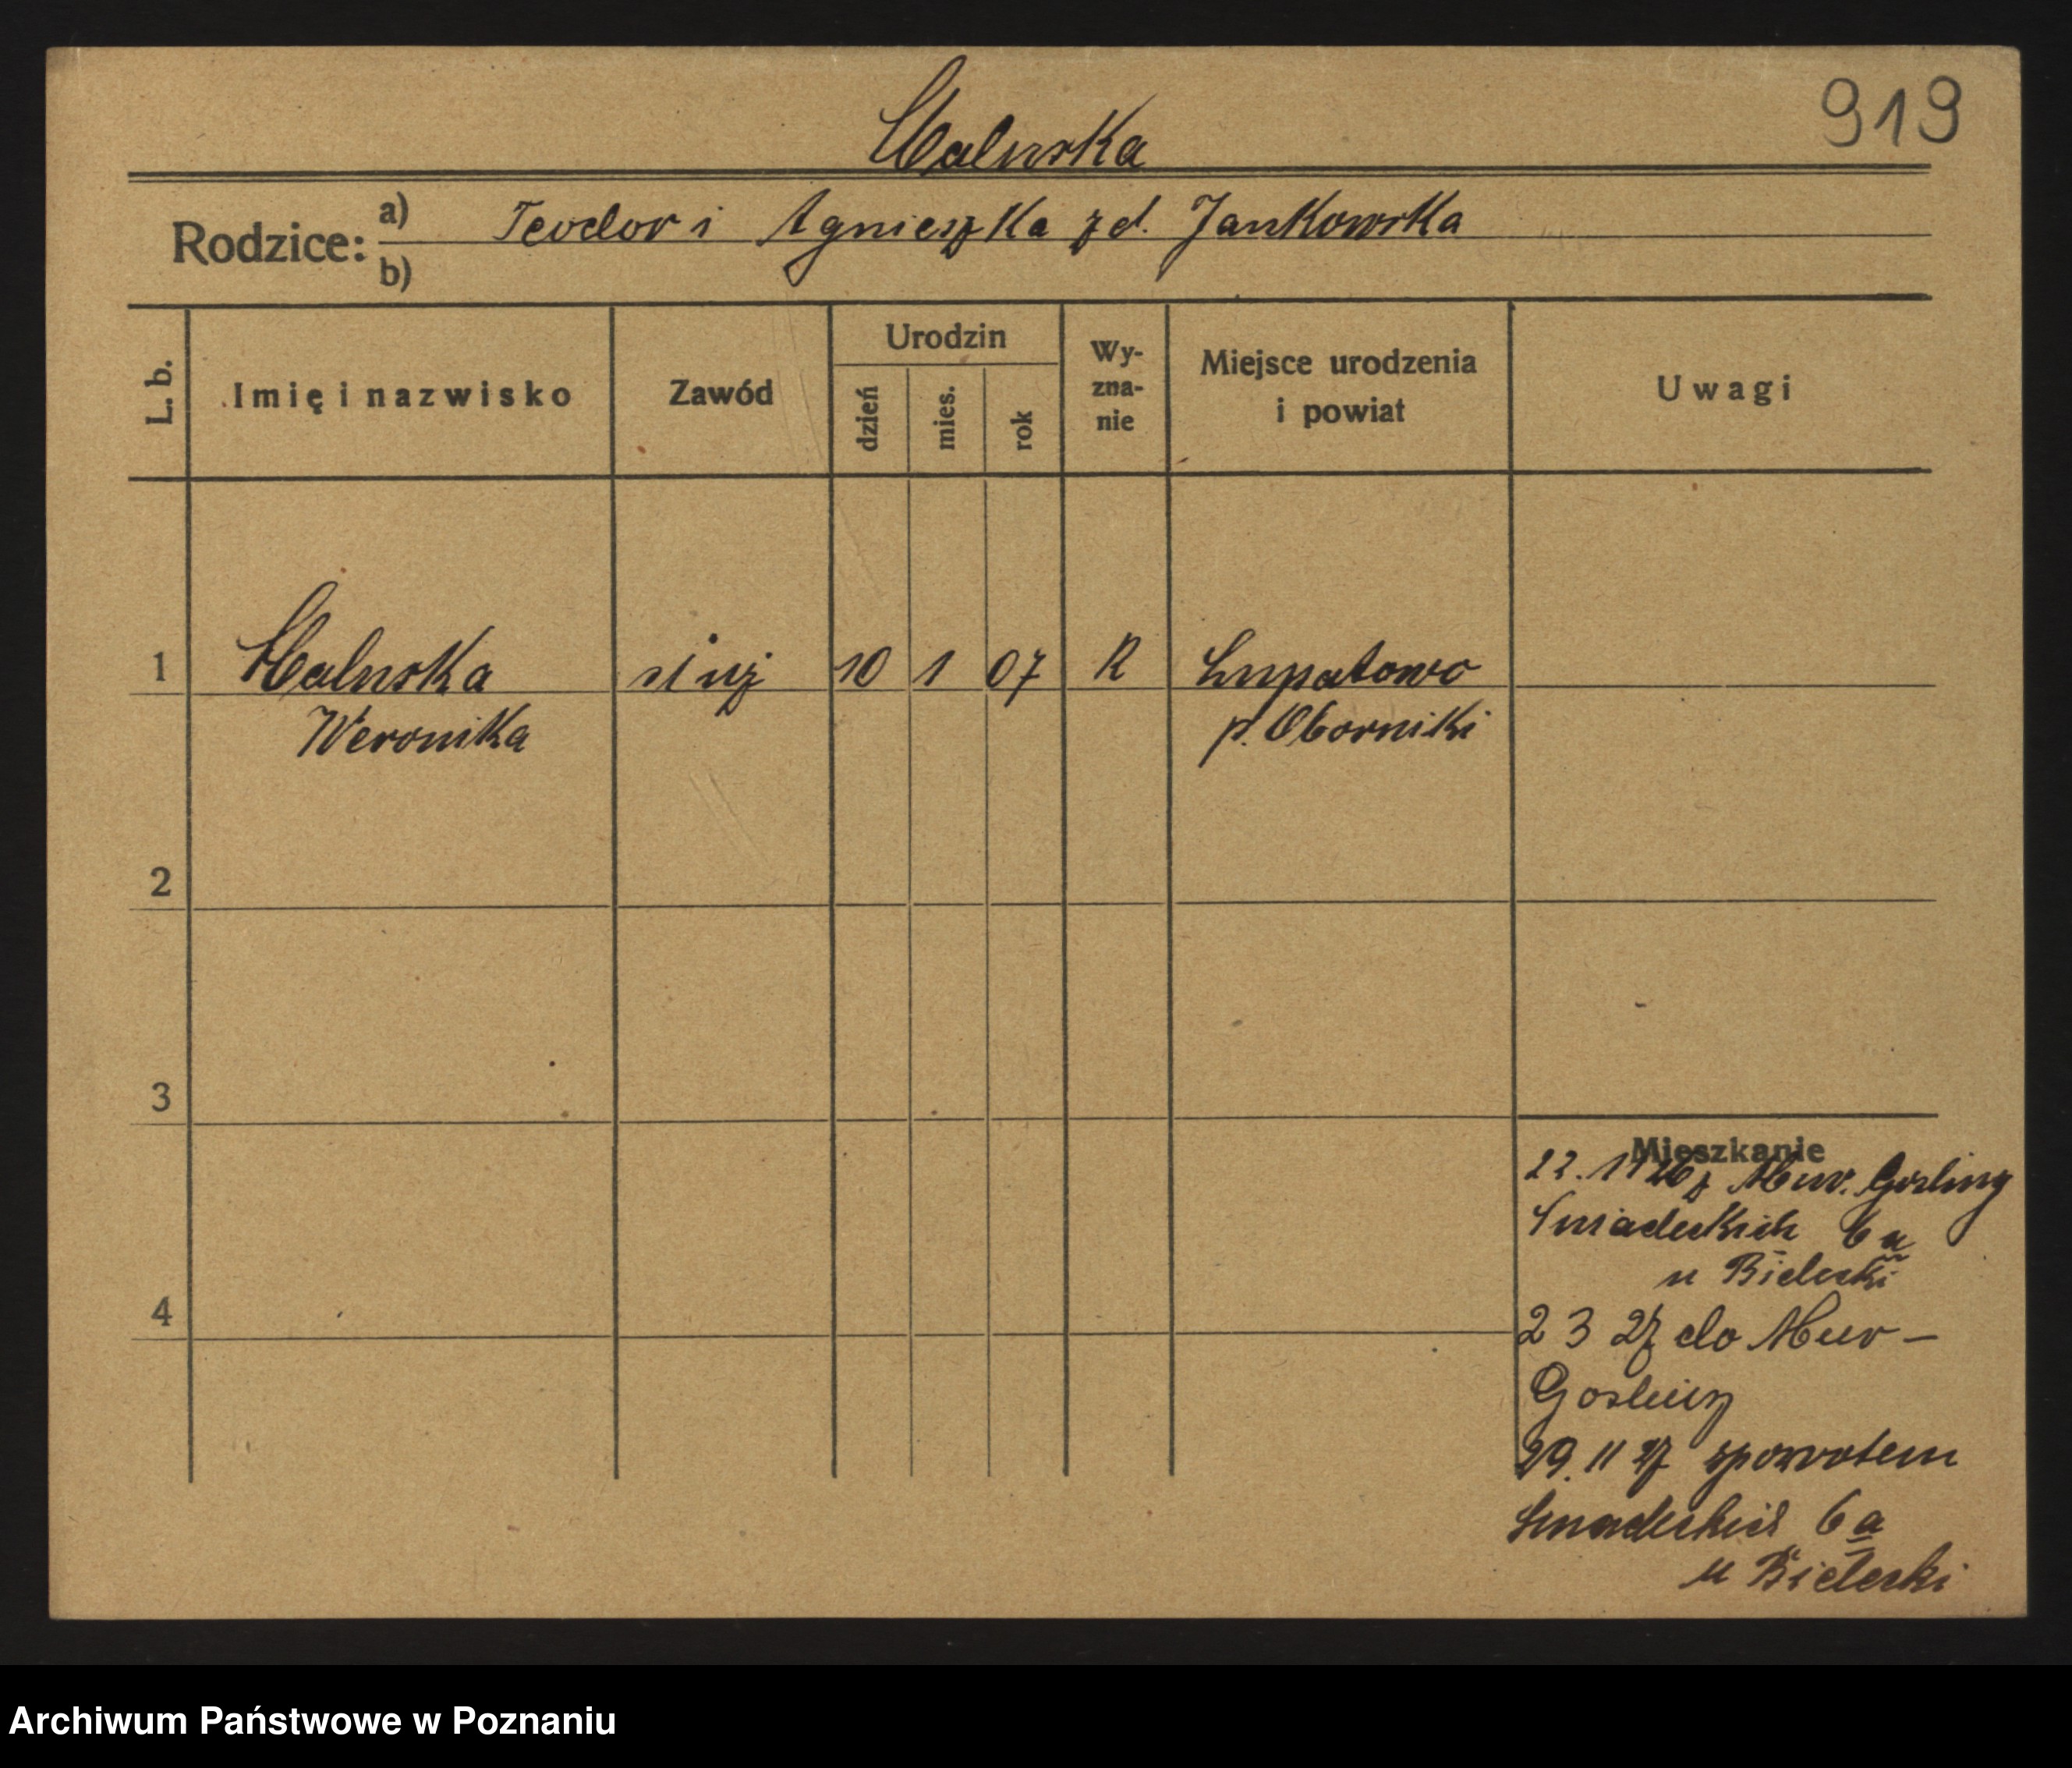 919
Maluska
Rodzice: a) Teodor i Agnieszka zd. Jankowska
b)
L. b. Imię i nazwisko Zawód Urodzin dzień mies. rok Wyznanie Miejsce urodzenia i powiat Uwagi
1 Maluska służ 10 1 07 R Łupatowo
Weronika p. Oborniki
2
3
Mieszkanie
22. 11 26 z Mur. Gośliny
Sniadeckich 6a
u Bielecki
4
2 3 27 do Mur-
Gosliny
29. 11 27 spowrotem
Sniadeckich 6a
u Bielecki
Archiwum Państwowe w Poznaniu